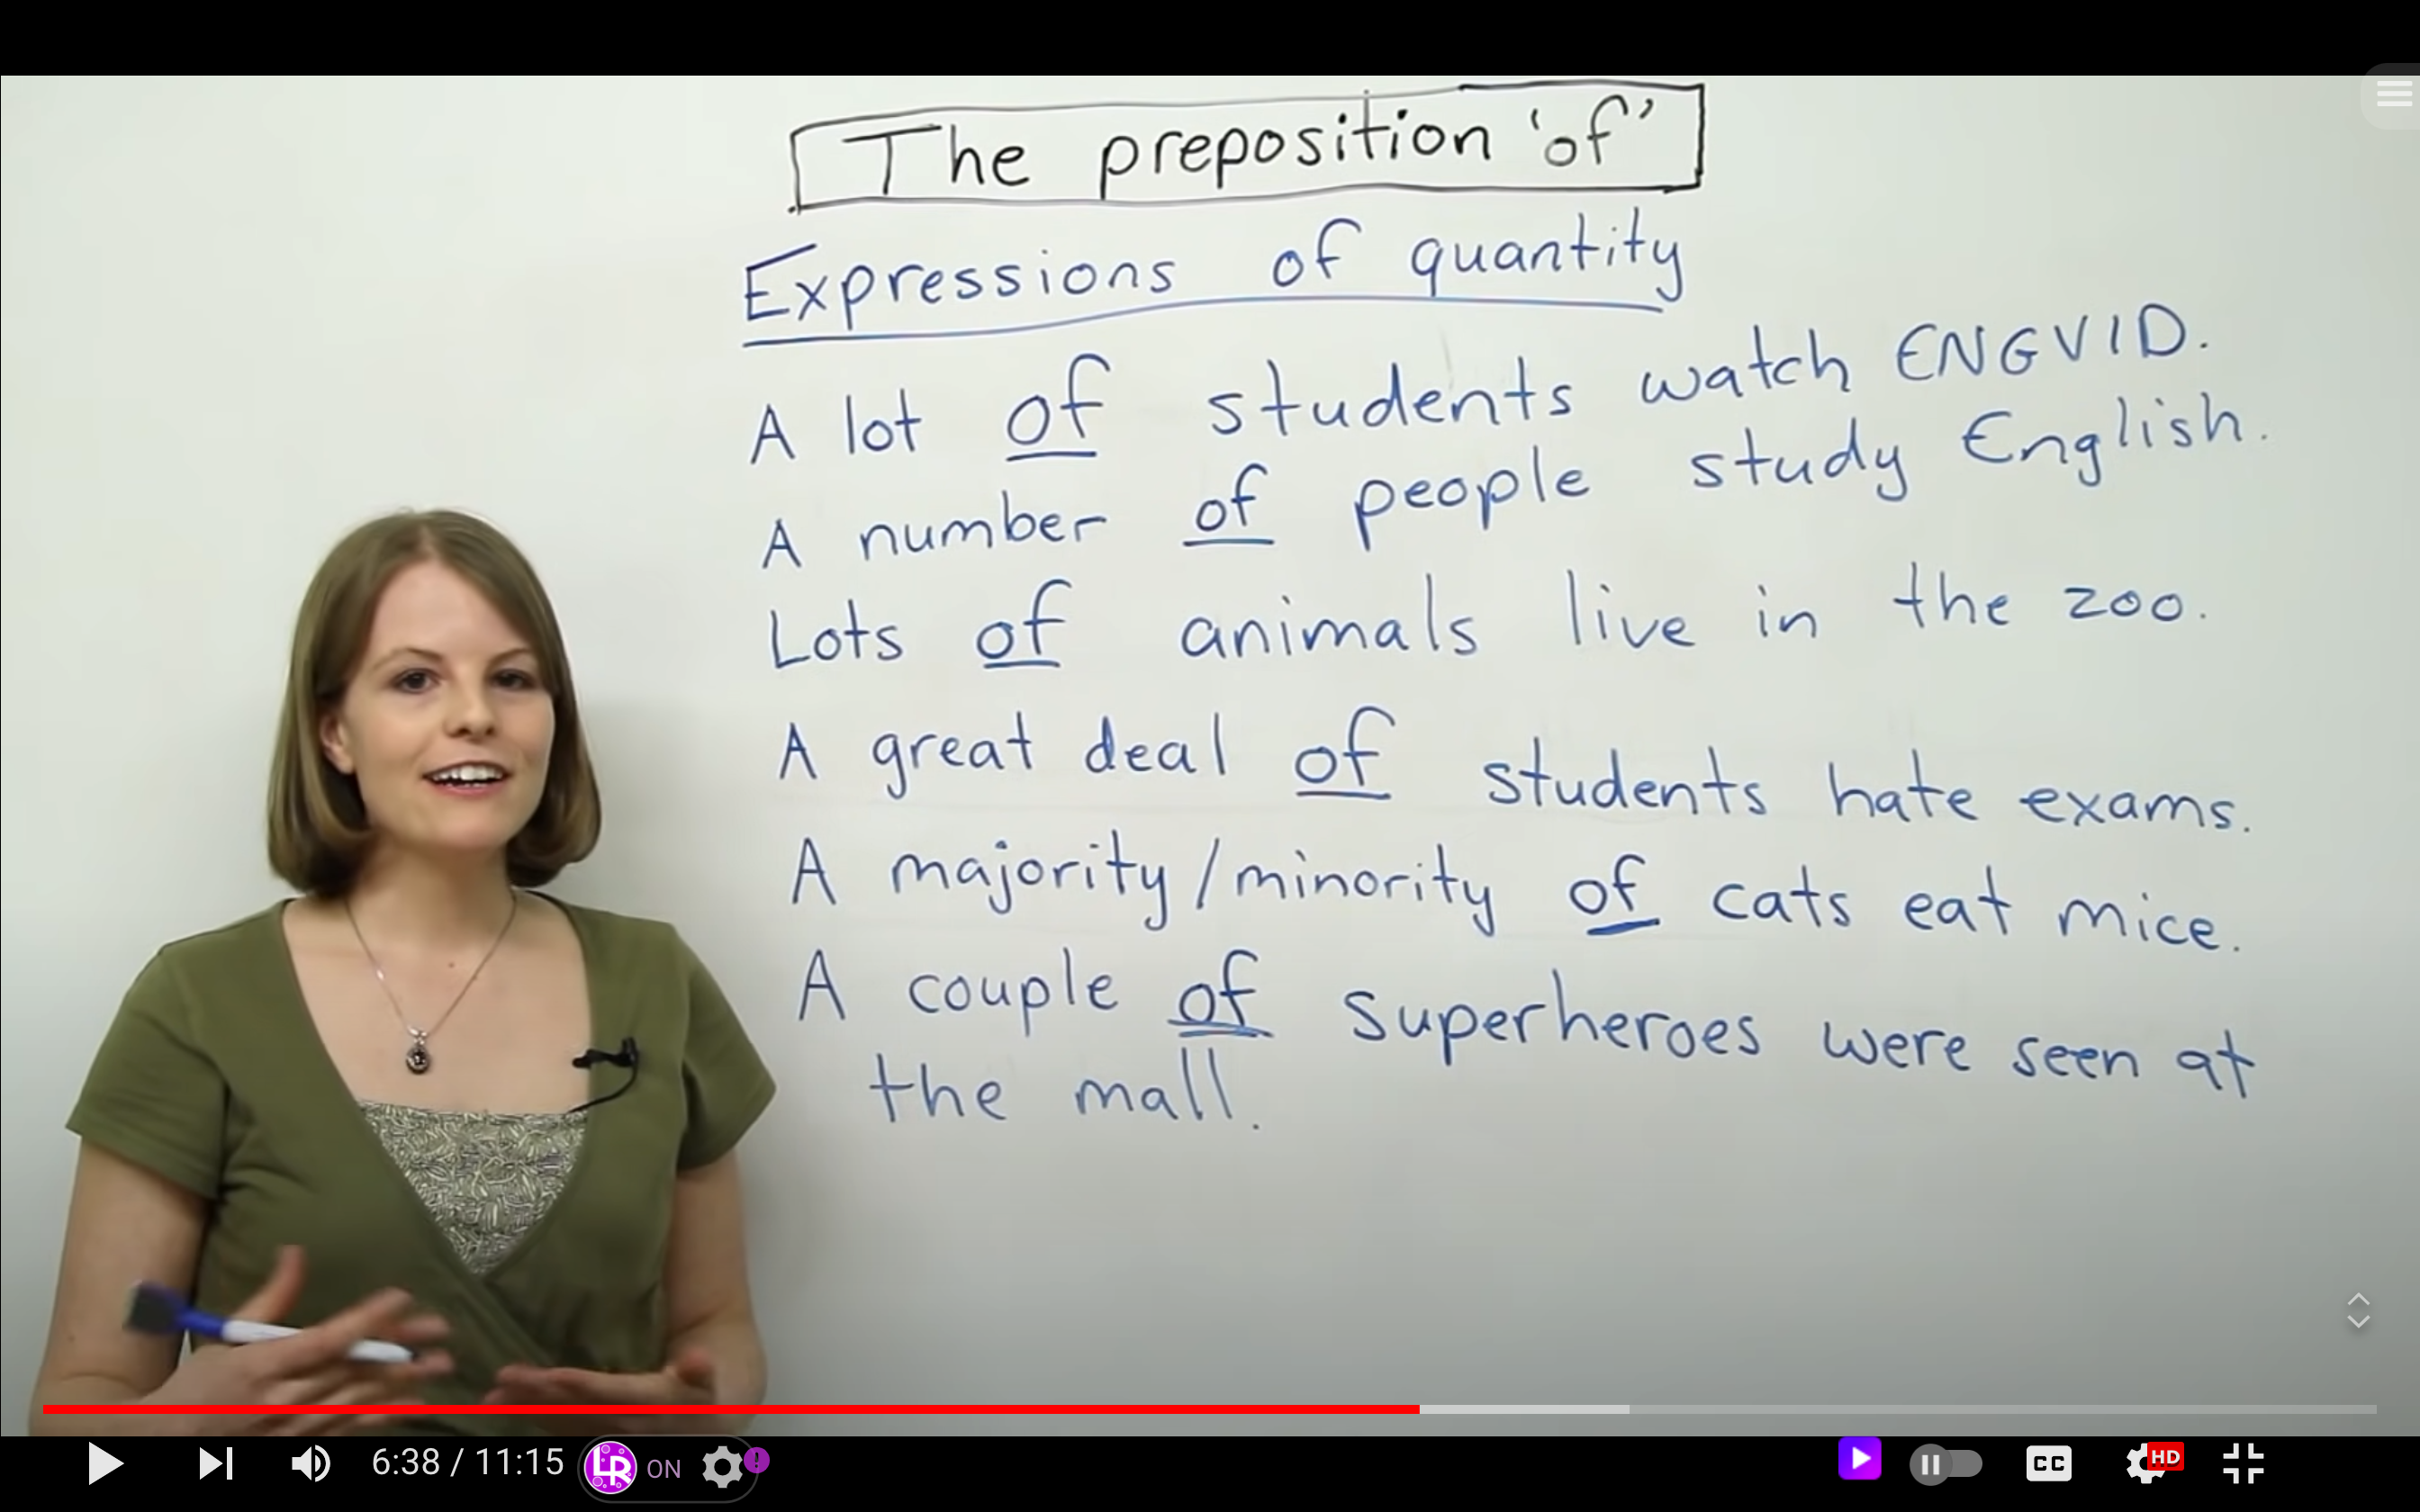 The preposition 'of'
Expressions of quantity
A lot of students watch ENGVID.
A number of people study English.
Lots of animals live in the zoo.
A great deal of students hate exams.
A majority/minority of cats eat mice.
A couple of superheroes were seen at
the mall.
6:38 / 11:15
LR
ON
!
CC
HD